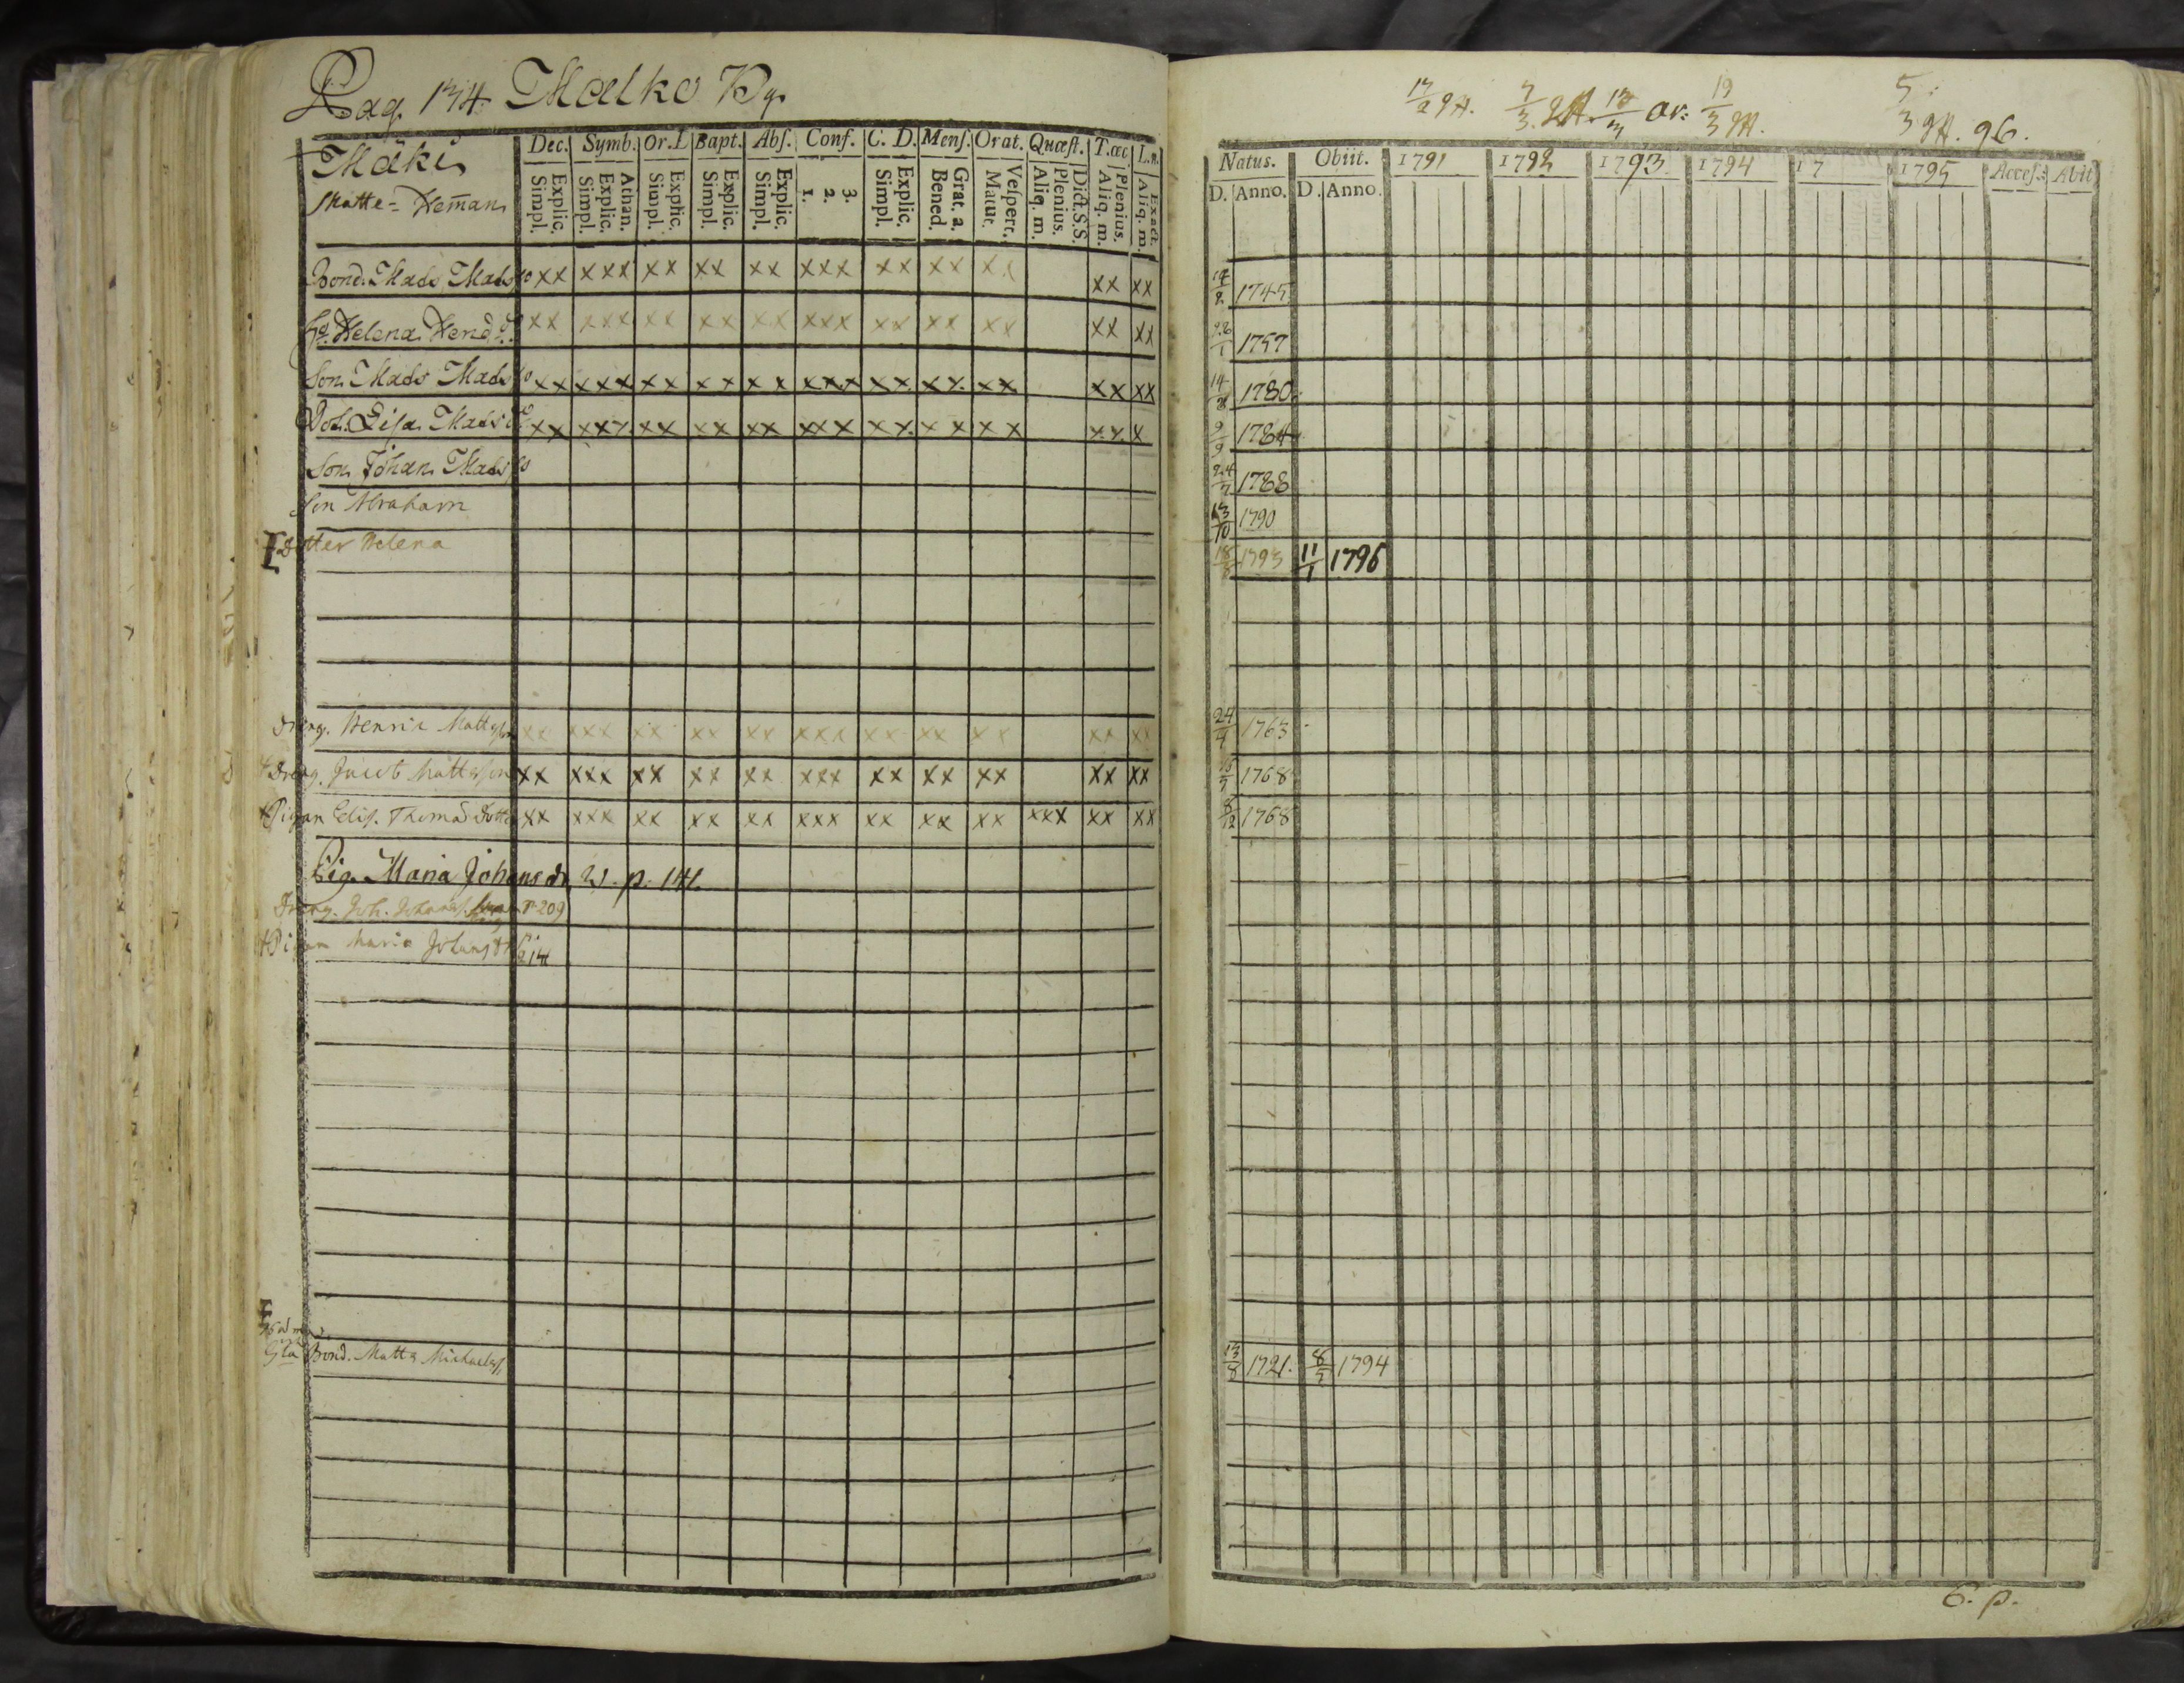 Pag. 134 Mälko By.
Mäki
Skatte-Hem̄an
Dec. Symb. Or.L Bapt. Abſ. Conf. C. D. Menſ. Orat. Quæſt. T.œc L.n.
Explic. Simpl. Athan. Explic. Simpl. Explic. Simpl. Explic. Simpl. Explic. Simpl. 3. 2. 1. Explic. Simpl. Grat. a. Bened. Veſpert. Matut. Dict.S.S. Plenius. Aliq. m. Plenius. Aliq. m. Exact. Aliq. m.
Bond. Mats Mats so xx xxx xx xx xx xxx xx xx xx xx xx
Helena Hend. xx xxx xx xx xx xxx xx xx xx xx xx
Son Mats Mats so xx xxx xx xx xx xxx xx xx xx xx xx
Dot. Lisa Mats xx xxx xx xx xx xxx xx xx xx xx x
Son Johan Mats so
Son Abraham
Dotter Helena
Dreng. Henric Mattsson xx xxx xx xx xx xxx xx xx xx xx xx
Dreng. Jacob Mattsson xx xxx xx xx xx xxx xx xx xx xx xx
Pigan Elis. Thomæ Dotter xx xxx xx xx xx xxx xx xx xx xxx xx xx
Pig. Maria Johans dr p. 141.
Dreng. Joh. Johanss. 209
Pigan Maria Johans dr
Gla Bond. Matts Michaelss.
17/2 gH. 7/3. 3 ar: 19/3 5/3 gH. 96.
Natus. Obiit. 1791 1792 1793 1794 17 1795 Acceſ. Abit
D. Anno. D. Anno.
1745
1757
14 1780
9/9 1784
1788
13/10 1790
18/8 1793 11/1 1796
24/4 1763
1768
8/12 1768
13/8 1721. 8 1794
6. p.